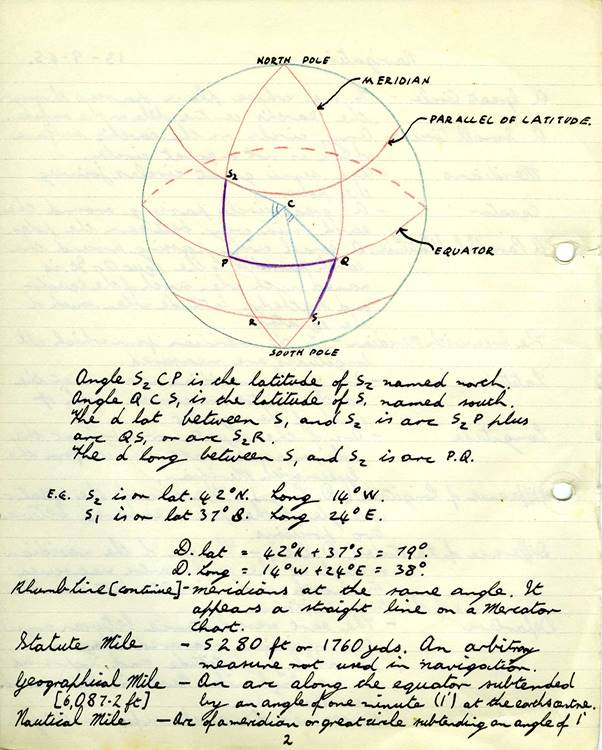 NORTH POLE
MERIDIAN
PARALLEL OF LATITUDE.
S2
C
EQUATOR
P
Q
R
S1
SOUTH POLE
Angle S2 CP is the latitude of S2 named north.
Angle Q C S, is the latitude of S, named south.
The d lat between S, and S2 is arc S2P plus
arc QS, or arc S2R.
The d long between S, and S2 is arc P.Q.
E.G. S2 is on lat. 42°N. Long 14°W.
S, is on lat 37°S. Long 24°E.
D. lat = 42°N + 37°S = 79°.
D. Long = 14°W + 24°E = 38°.
Rhumb Line [continue] - meridians at the same angle. It
appears a straight line on a Mercator
chart.
Statute Mile - 5280 ft or 1760 yds. An arbitrary
measure not used in navigation.
Geographical Mile - An arc along the equator subtended
[6,087.2 ft] by an angle of one minute (1') at the earths centre.
Nautical Mile - Arc of a meridian or great circle subtending an angle of 1'
2